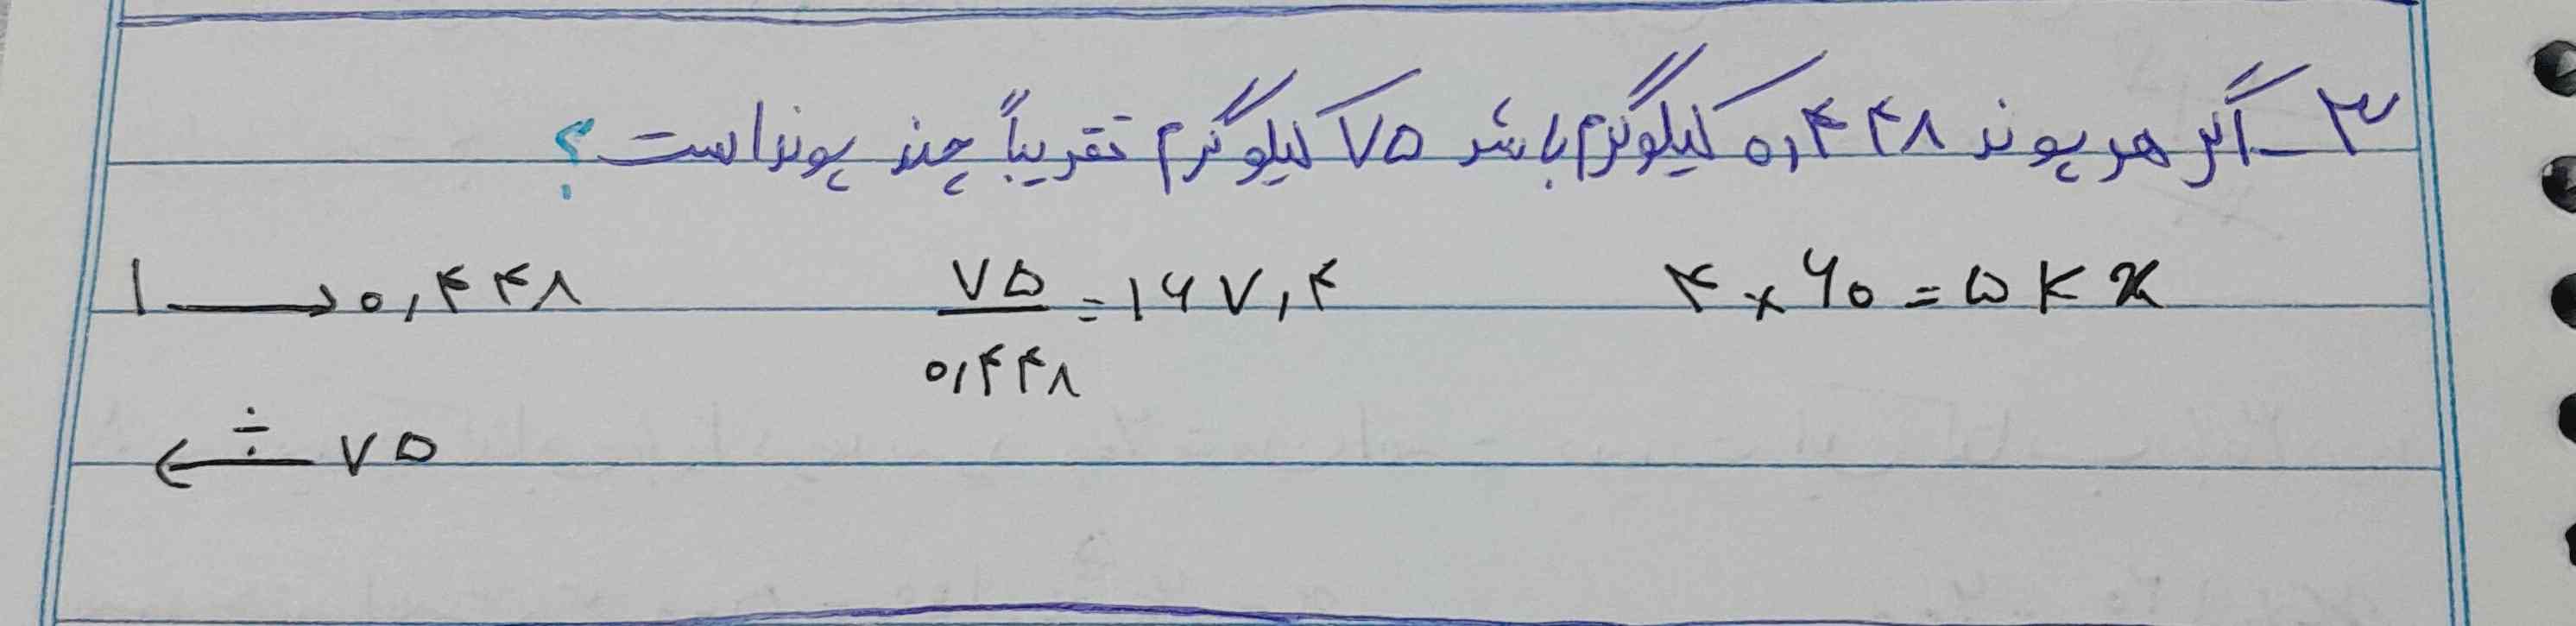 ۳_ اگر هر پوند ۰,۴۴۸ کیلوگرم باشد ۷۵ کیلوگرم تقریباً چند پوند است؟
۱ → ۰,۴۴۸    ۷۵/۰,۴۴۸ = ۱۶۷,۴    ۴ × ۶۰ = ۵ k x
← ÷ ۷۵